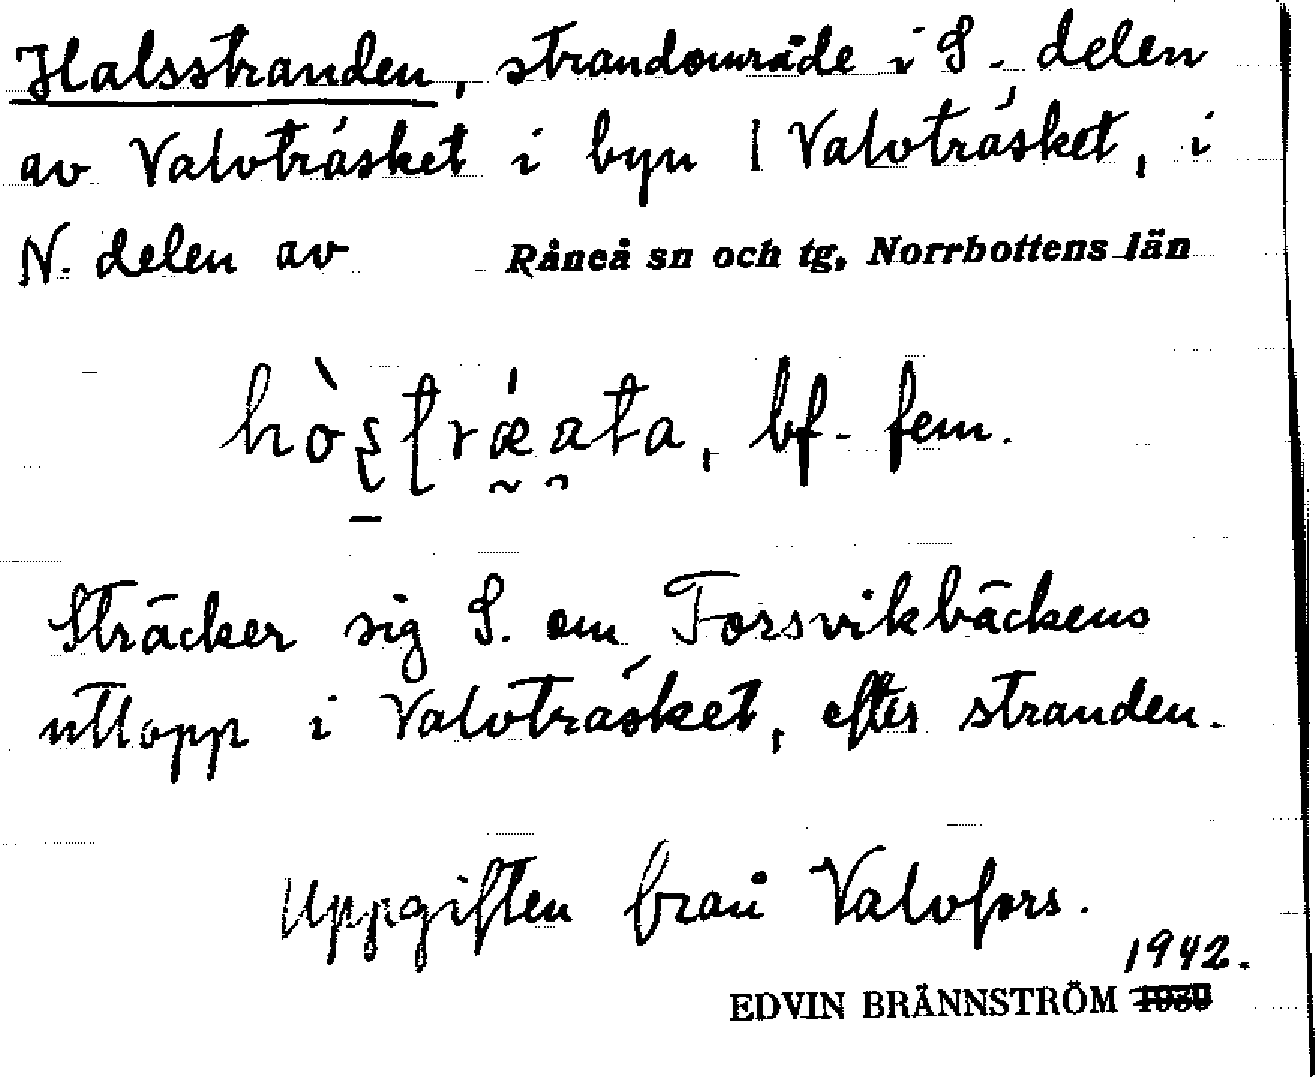 Halsstranden, strandområde i S. delen
av Valvträsket i byn Valvträsket, i
N. delen av Råneå sn och tg, Norrbottens län
bf. fem.
Sträcker sig S. om Forsvikbäckens
utlopp i Valvträsket, efter stranden.
Uppgiften från Valvfors.
1942.
EDVIN BRÄNNSTRÖM 1930